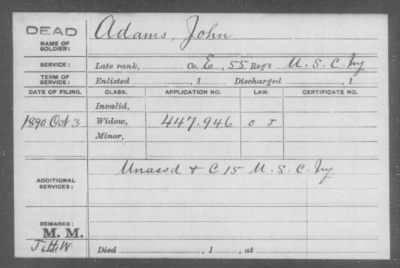 DEAD
NAME OF SOLDIER: Adams, John
SERVICE: Late rank, Co. E, 55 Reg't U. S. C. Iny
TERM OF SERVICE: Enlisted , 1 Discharged , 1
DATE OF FILING. CLASS. APPLICATION NO. LAW. CERTIFICATE NO.
Invalid,
1890 Oct 3 Widow, 447.946 O J
Minor,
ADDITIONAL SERVICES: Unassd + C 15 U. S. C. Iny
REMARKS:
M. M.
J.H.W Died , 1 , at